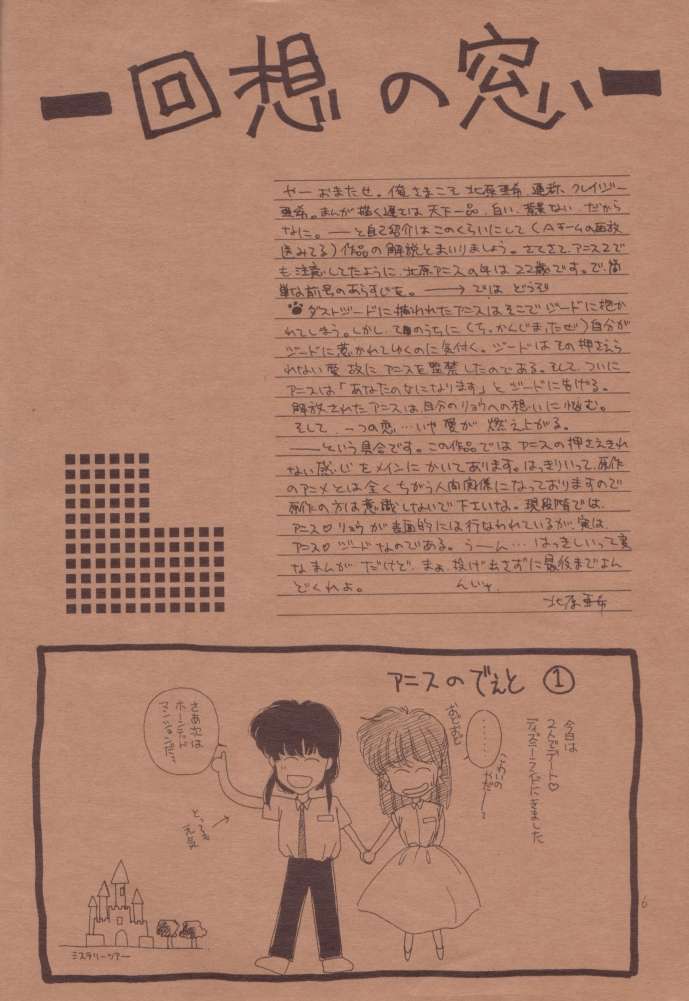 ー回想の窓いー
やー おまたせ。俺さまこそ 北原亜希、通称、クレイジー
亜希。まんが描く速さは 天下一品、白い、背景ない、だから
なに。——と自己紹介はこのくらいにして（Aチームの再放
送みてる）作品の解説とまいりましょう。さてさて、アニス2で
も注意してたように、北原アニスの年は22歳です。で、簡
単な前号のあらすじを。——→ では どうぞ
ダストジードに捕われたアニスはそこでジードに抱か
れてしまう。しかし、そのうちに（ち、かんじまったぜ）自分が
ジードに惹かれてゆくのに気付く。ジードはその押さえら
れない愛故に、アニスを監禁したのである。そして、ついに
アニスは「あなたのなにになります」とジードに告げる。
解放されたアニスは、自分のリョウへの想いに悩む。
そして、一つの恋…いや愛が 燃え上がる。
——という具合です。この作品では アニスの押さえきれ
ない感じをメインにかいてあります。はっきりいって、原作
のアニメとは全くちがう人間関係になっておりますので
原作の方は意識しないで下さいな。現段階では、
アニス♡リョウが表面的には行なわれているが、実は、
アニス♡ジードなのである。うーん…はっきしいって変
なまんがだけど、まぁ、投げ出さずに最後までよん
どくれよ。 んじゃ、
北原亜希
アニスのでぇと ①
今日は
2人でデート♡
ディズニーランドにきました
おどおど
………
こっこの
やだ〜
さあ次は
ホーンテッド
マンションだっ
とっても
元気
ミステリーツアー
6